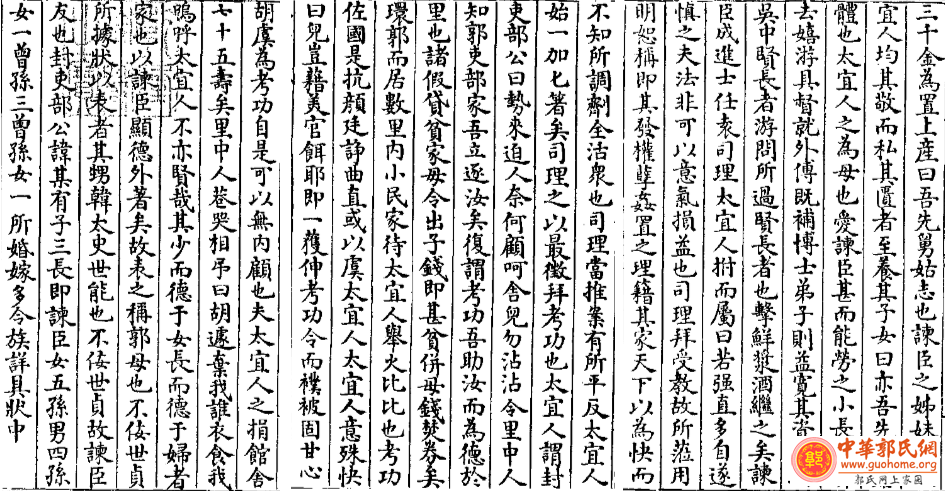 三千金為置上産曰吾先舅姑志也諫臣之姊妹
宜人均其敬而私其匱者至養其子女曰亦吾先
體也太宜人之為母也愛諫臣甚而能勞之小長
去嬉游具督就外傅既補博士弟子則益寬其
吳中賢長者游問所過賢長者也擊鮮漿酒繼之矣諫
臣成進士任袁司理太宜人拊而屬曰若强直多自遂
慎之夫法非可以意氣損益也司理拜受教故所蒞用
明恕稱即其發權孽姦置之理籍其家天下以為快而
不知所調劑全活衆也司理當推案有所平反太宜人
始一加匕箸矣司理之以最徵拜考功也太宜人謂封
吏部公曰勢來迫人奈何顧呵舍兒勿沾沾令里中人
知郭吏部家吾立逐汝矣復謂考功吾助汝而為德於
里也諸假貸貧家毋令出子錢即甚貧併母錢焚券矣
環郭而居數里内小民家待太宜人舉火比比也考功
佐國是抗顔廷諍曲直或以虞太宜人太宜人意殊快
曰兒豈藉美官餌耶即一獲伸考功令而襆被固甘心
胡虞為考功自是可以無内顧也夫太宜人之捐館舍
七十五壽矣里中人巷哭相弔曰胡遽棄我誰衣食我
嗚呼太宜人不亦賢哉其少而德于女長而德于婦者
家也以諫臣顯德外著矣故表之稱郭母也不佞世貞
所據狀以表者其甥韓太史世能也不佞世貞故諫臣
友也封吏部公諱某有子三長即諫臣女五孫男四孫
女一曾孫三曾孫女一所婚嫁多令族詳具狀中
中華郭氏網
www.guohome.org
郭氏网上家園